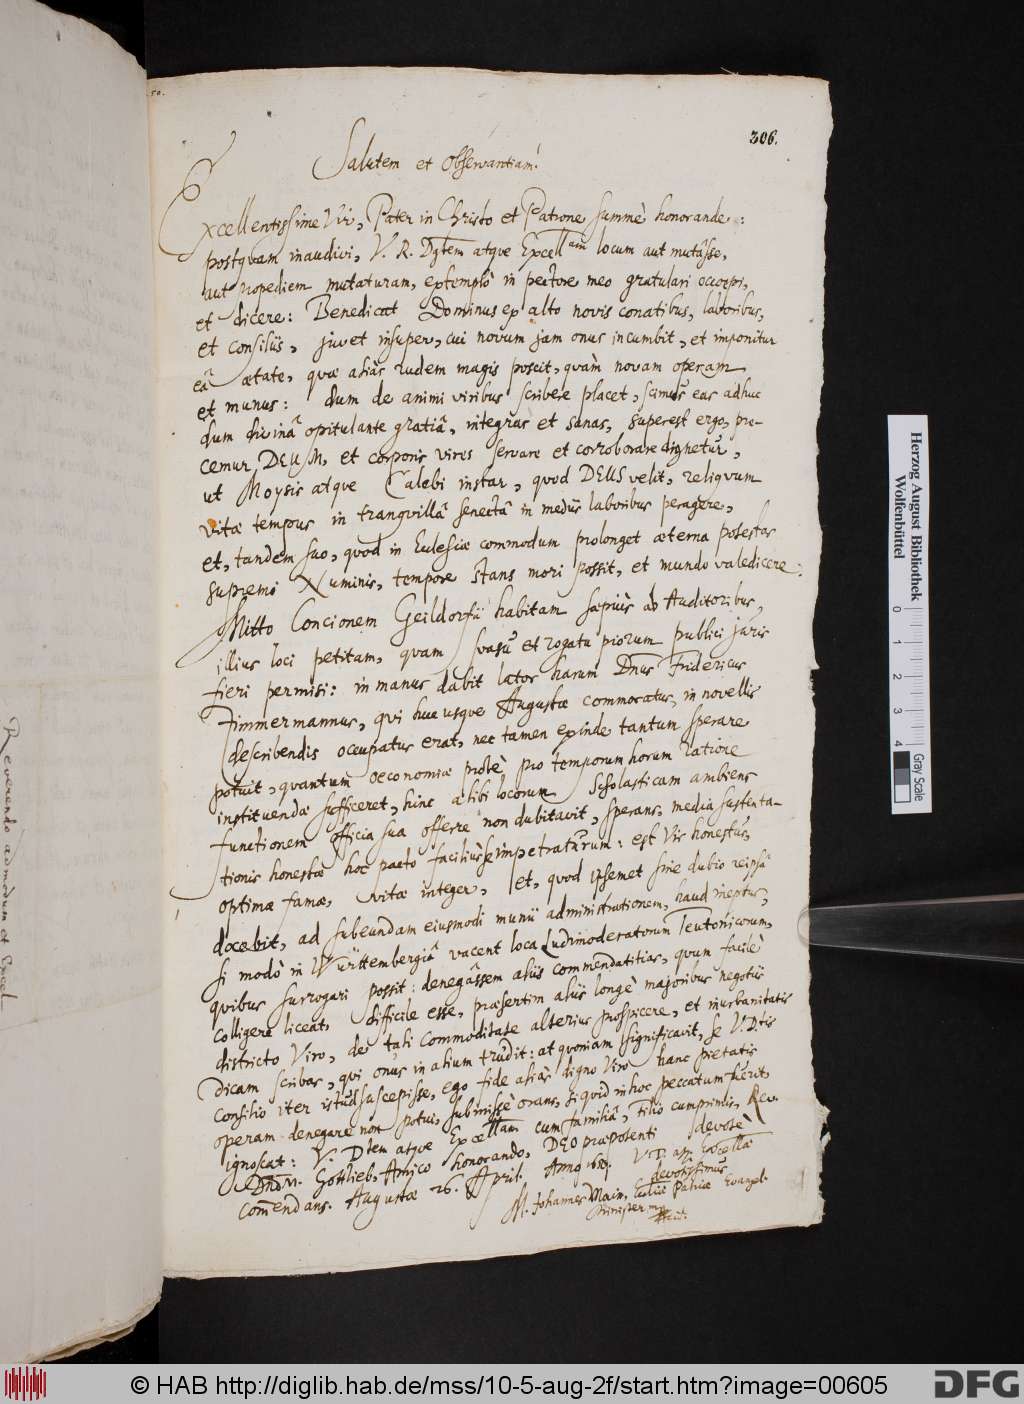 50.
306.
Salutem et Observantiam!
Excellentissime Vir, Pater in Christo et Patrone summè honorande:
postqvam inaudivi, V. R. Dgtem atqve Excellam locum aut mutâsse,
aut propediem mutaturam, extemplò in pectore meo gratulari occoepi,
et dicere: Benedicat Dominus ex alto novis conatibus, laboribus,
et consiliis, juvet insuper, cui novum jam onus incumbit, et imponitur
eâ ætate, quæ aliàs rudem magis poscit, quàm novam operam
et munus: dum de animi viribus scribere placet, scimus eas adhuc
dum divinâ opitulante gratiâ, integras et sanas, superest ergo, pre-
cemur, DEUM, et corporis vires servare et corroborare dignetur,
ut Moysis atque Calebi instar, quod DEUS velit, reliqvum
vitæ tempus in tranqvillâ senectâ in mediis laboribus peragere,
et, tandem suo, quod in Ecclesiæ commodum prolonget æterna potestas
supremi Numinis, tempore stans mori possit, et mundo valedicere:
Mitto Concionem Geildorfii habitam sæpius ab Auditoribus,
illius loci petitam, quam svasu et rogatu piorum publici juris
fieri permisi: in manus dabit lator harum Dnus Fridericus
Zimmermannus, qui huc usque Augustæ commoratus, in novellis
describendis occupatus erat, nec tamen exinde tantum sperare
potuit, quantum oeconomiæ probè pro temporum horum ratione
instituendæ sufficeret, hinc alibi locorum Scholasticam ambiens
functionem officia sua offerre non dubitavit, sperans, media sustenta-
tionis honestæ hoc pacto facilius se impetraturum: est Vir honestus,
optimæ famæ, vitæ integer, et, quod ipsemet sine dubio reipsâ
docebit, ad subeundam eiusmodi munii administrationem, haud ineptus,
si modò in Würtembergiâ vacent loca Ludimoderatorum Teutonicorum,
quibus surrogari possit: denegâssem aliis commendatitias, quum facilè
colligere liceat, difficile esse, præsertim aliis longè majoribus negotiis
districto Viro, de tali commoditate alterius prospicere, et inurbanitatis
dicam scribas, qui onus in alium trudit: at quoniam significavit, se V. Dtis
consilio iter istud suscepisse, ego fide aliàs digno Viro hanc pietatis
operam denegare non potui, submissè orans, si quid in hoc peccatum fuerit,
ignoscat: V. Dtem atque Excellam cum familiâ, filio cumprimis, Rev.
Dno M. Gottlieb, Amico honorando, DEO præpotenti devotè
commendans. Augustæ 26. April. Anno
V. D. atq. Excellæ
devotissimus
M. Johannes Main, Evangel.
Minister
Reverendo admodum et Excel
Herzog August Bibliothek
Wolfenbüttel
0 1 2 3 4
Gray Scale
© HAB http://diglib.hab.de/mss/10-5-aug-2f/start.htm?image=00605
DFG